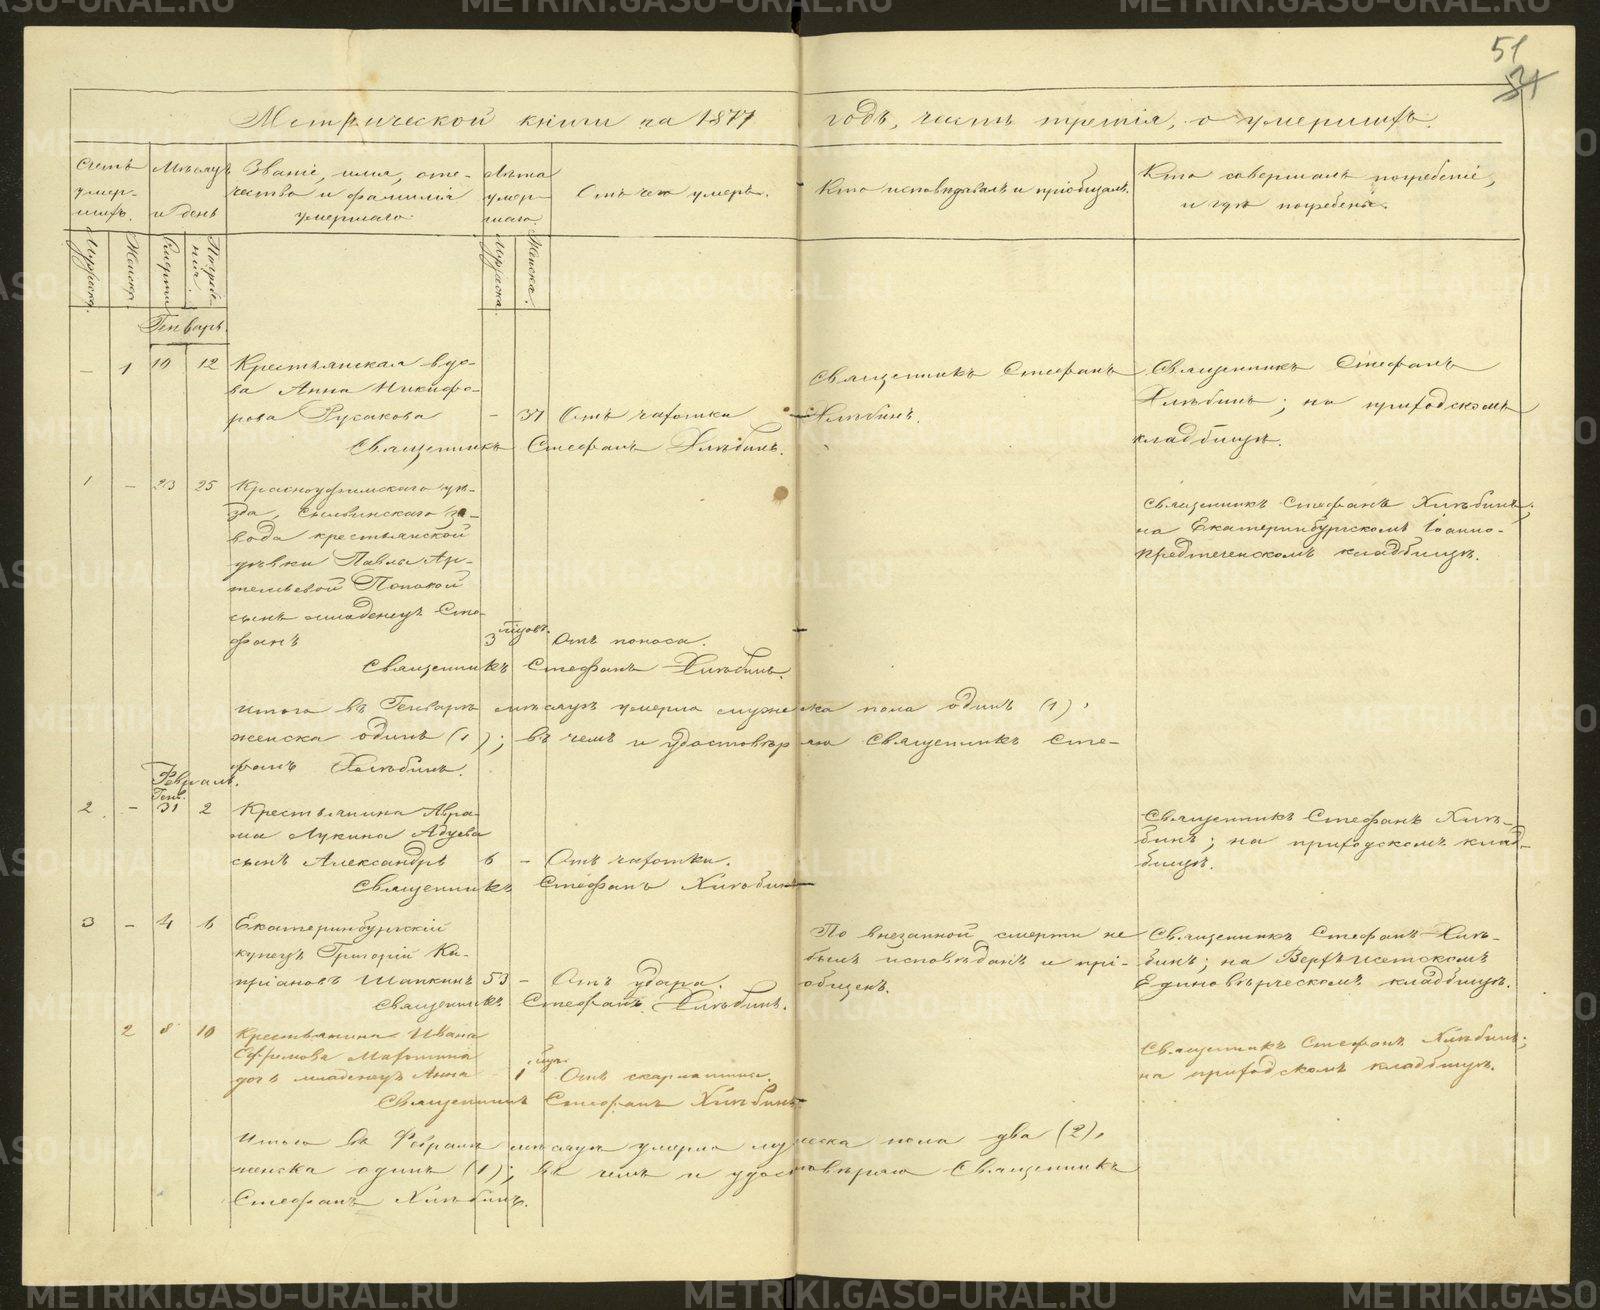 51
31
Метрической книги на 1877 годъ, часть третія, о умершихъ.
Счетъ умер-шихъ.
Мѣсяцъ и день
Званіе, имя, оте-
чество и фамилія
умершаго
Лѣта умер-шаго.
Отъ чего умеръ.
Кто исповѣдывалъ и пріобщалъ.
Кто совершалъ погребеніе,
и гдѣ погребены.
Мужска.
Женска.
Смерти
Погребе-нія.
Мужска.
Женска.
Генварь.
– 1 10 12 Крестьянская вдо-
ва Анна Никифо-
рова Русакова – 37 Отъ чахотки
Священникъ Стефанъ
Хлѣбинъ.
Священникъ Стефанъ
Хлѣбинъ; на приходскомъ
кладбищѣ.
Священникъ Стефанъ Хлѣбинъ.
1 – 23 25 Красноуфимскаго уѣ-
зда, Сылвинскаго за-
вода крестьянской
дѣвки Павлы Ар-
темьевой
сынъ младенецъ Сте-
фанъ 3 Отъ поноса.
Священникъ Стефанъ Хлѣбинъ;
на Екатеринбургскомъ Іоанно-
предтеченскомъ кладбищѣ.
Священникъ Стефанъ Хлѣбинъ.
Итого въ Генварѣ мѣсяцѣ умерло мужеска пола одинъ (1),
женска одинъ (1); въ чемъ и удостовѣряю Священникъ Сте-
фанъ Хлѣбинъ.
Февраль.
Генв.
2 – 31 2 Крестьянина Авра-
ма Лукина
сынъ Александръ 6 – Отъ чахотки.
Священникъ Стефанъ Хлѣ-
бинъ; на приходскомъ клад-
бищѣ.
Священникъ Стефанъ Хлѣбинъ
3 – 4 6 Екатеринбургскій
купецъ Григорій Ки-
пріановъ Шапкинъ 53 – Отъ удара.
По внезапной смерти не
былъ исповѣданъ и прі-
общенъ.
Священникъ Стефанъ Хлѣ-
бинъ; на Верхъисетскомъ
Единовѣрческомъ кладбищѣ.
Священникъ Стефанъ Хлѣбинъ.
2 8 10 Крестьянина Ивана
Ефремова
дочь младенецъ Анна – 1 Отъ скарлатины.
Священникъ Стефанъ Хлѣбинъ;
на приходскомъ кладбищѣ.
Священникъ Стефанъ Хлѣбинъ
Итого въ Февралѣ мѣсяцѣ умерло мужеска пола два (2),
женска одинъ (1); въ чемъ и удостовѣряю Священникъ
Стефанъ Хлѣбинъ.
METRIKI.GASO-URAL.RU